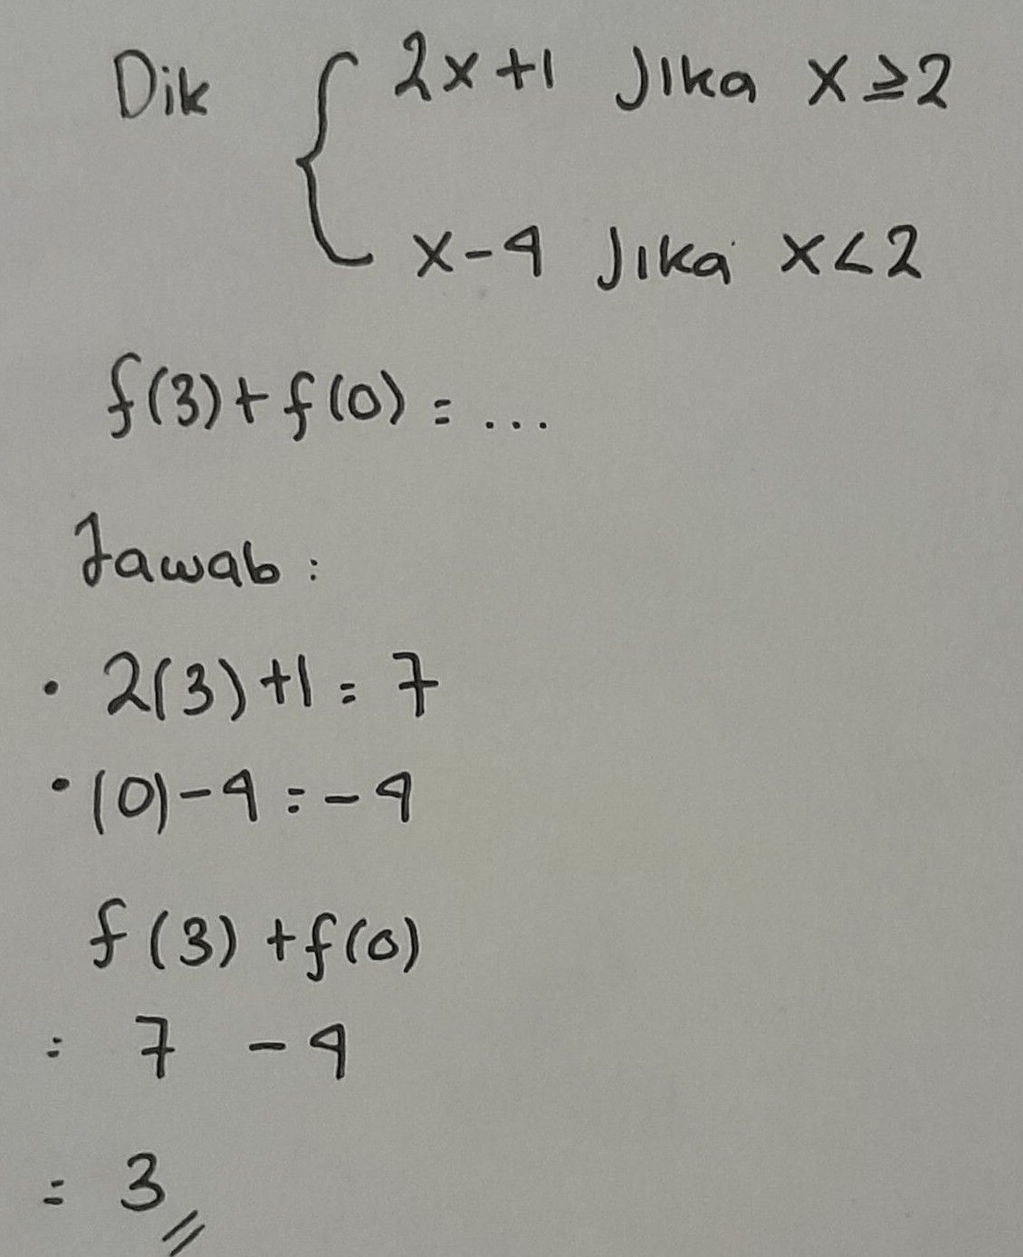 Dik { 2x+1 Jika x≥2
x-4 Jika x<2
f(3)+f(0) = ...
Jawab :
• 2(3)+1 = 7
• (0)-4 = -4
f(3)+f(0)
= 7 - 4
= 3 //